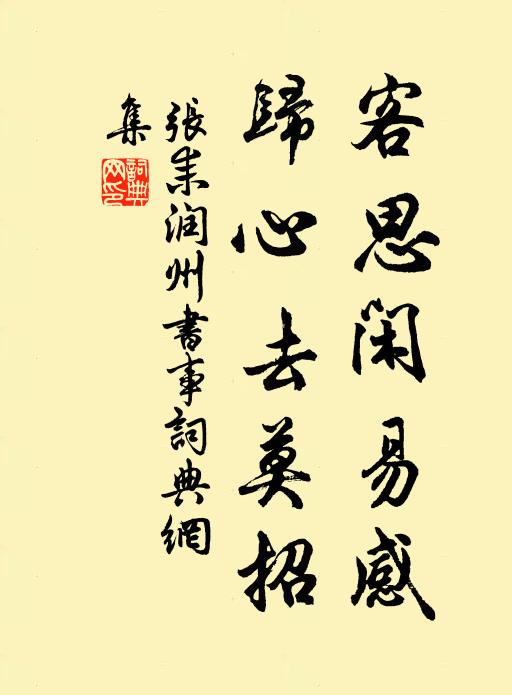 客思闲易感
歸心去莫招
張耒润州書事詞典網
集
詞典
网印